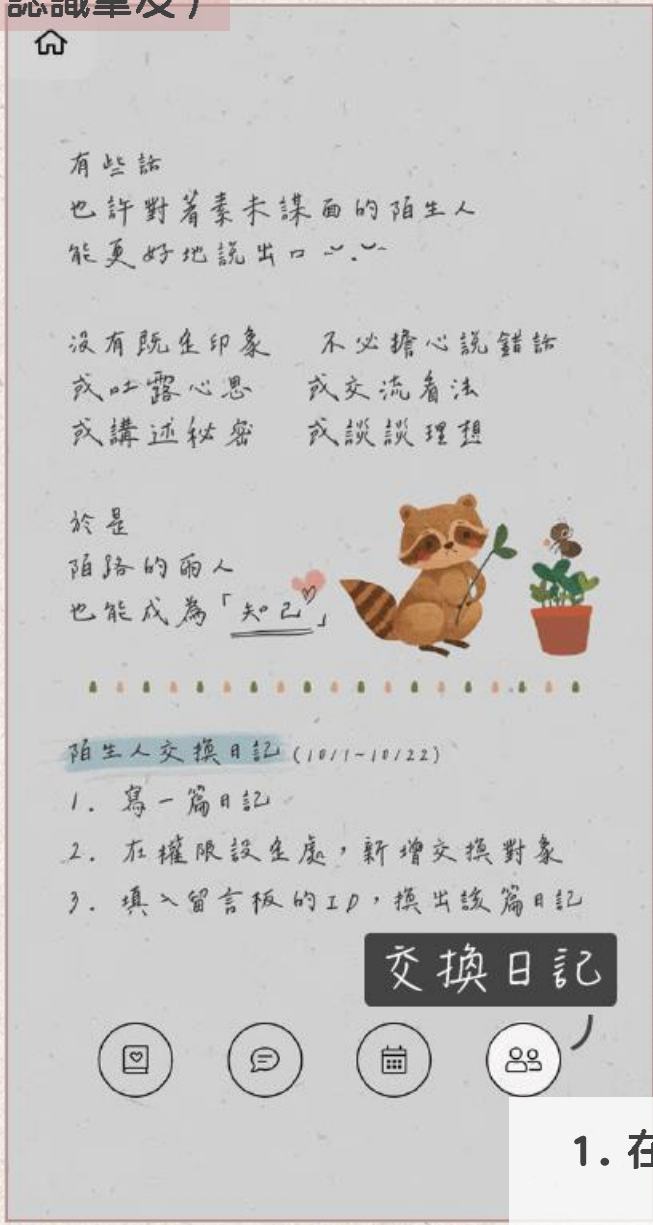 認識筆友）
有些話
也許對著素未謀面的陌生人
能更好地說出口
沒有既定印象　不必擔心說錯話
或吐露心思　或交流看法
或講述秘密　或談談理想
於是
陌路的兩人
也能成為「知己」
陌生人交換日記(10/1~10/22)
1. 寫一篇日記
2. 在權限設定處，新增交換對象
3. 填入留言板的ID，換出該篇日記
交換日記
1. 在